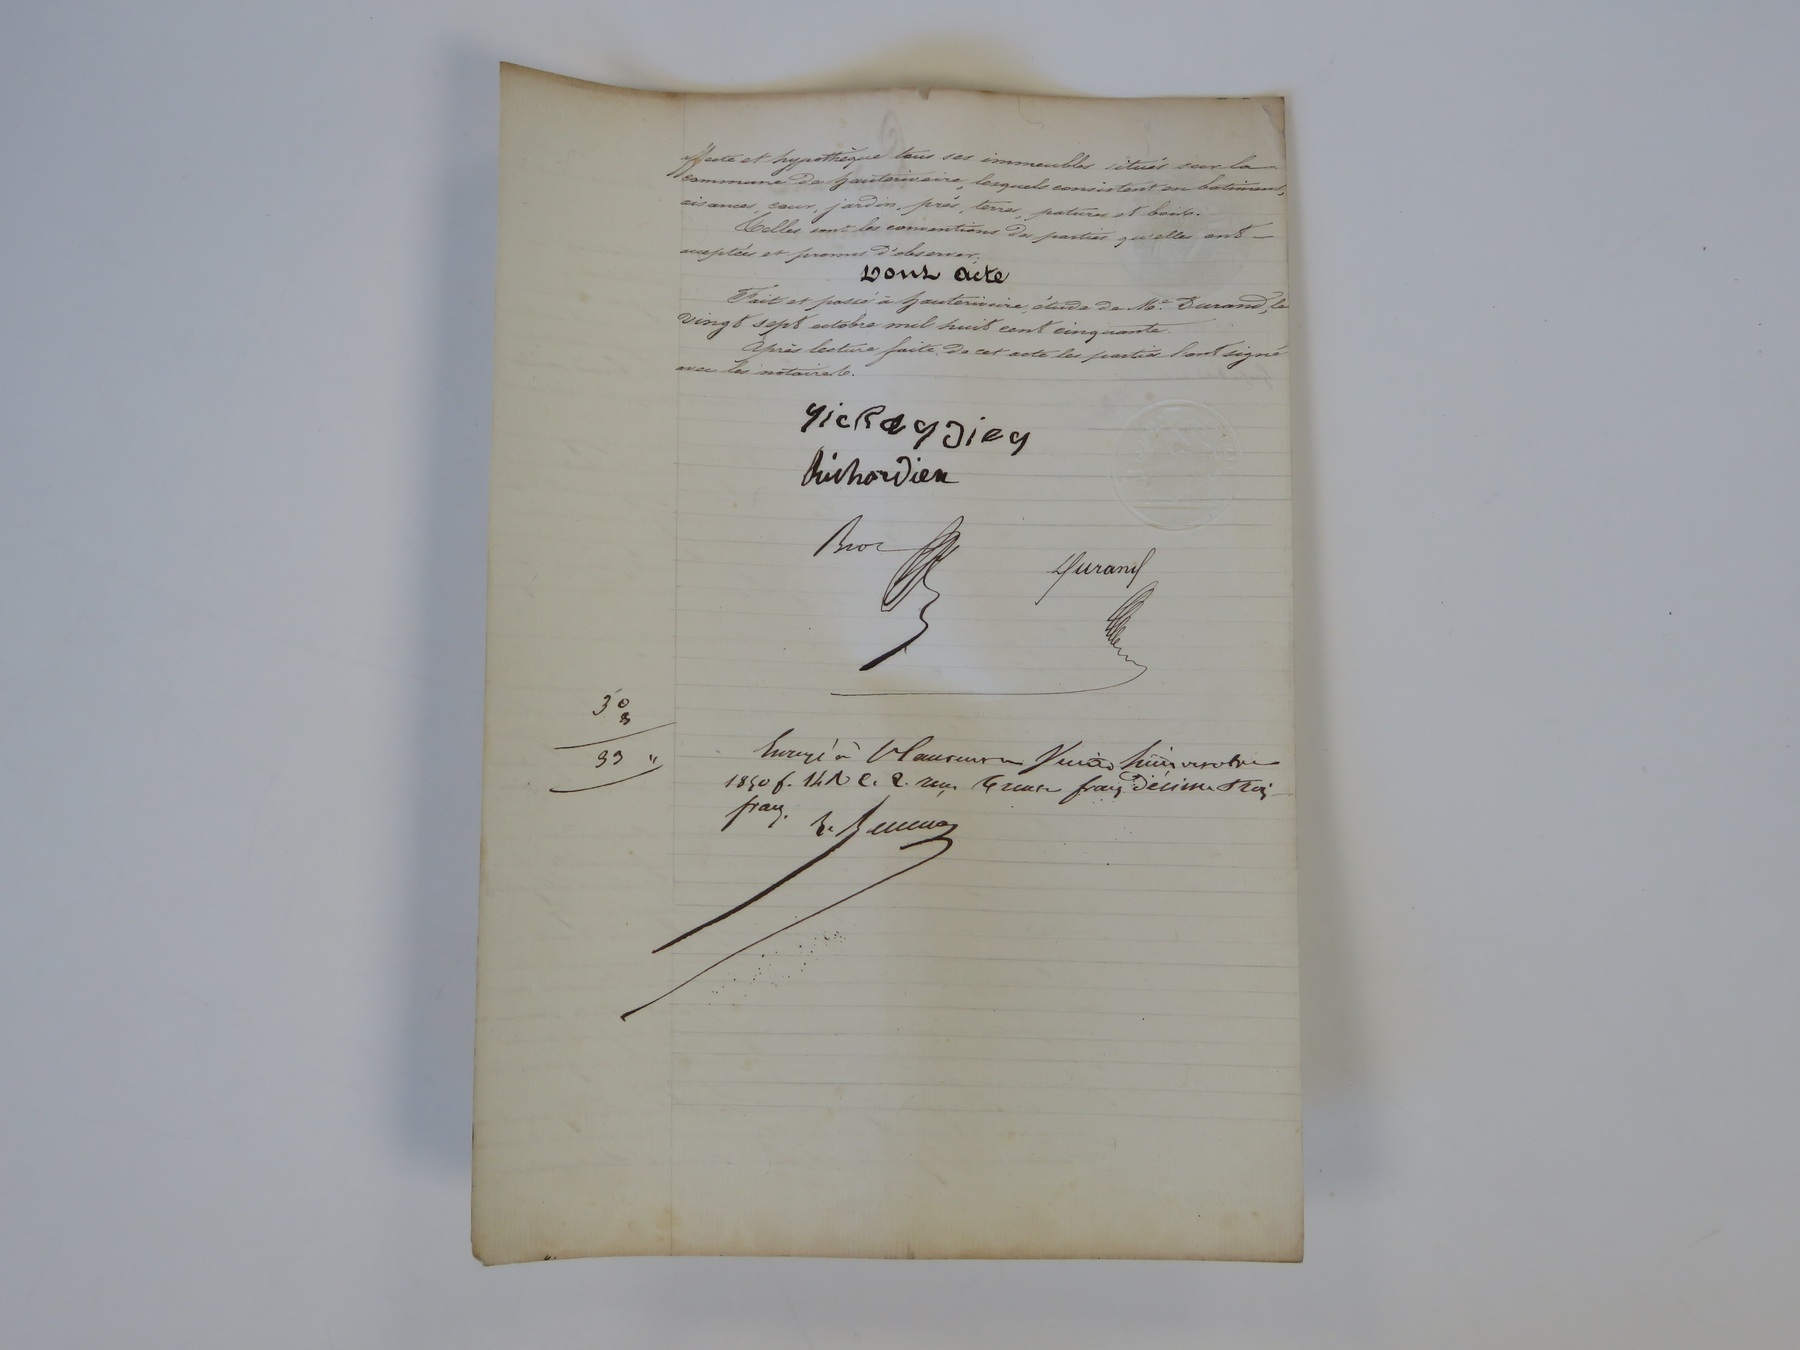 affecte et hypothèque tous ses immeubles situés sur la
commune de Hauterivoire, lesquels consistent en batiments,
aisances, cour, jardin, prés, terres, patures et bois.
Telles sont les conventions des parties qu'elles ont
acceptées et promis d'observer.
Dont acte
Fait et passé à hauterivoire, étude de Me. Durand, le
vingt sept octobre mil huit cent cinquante.
Après lecture faite de cet acte les parties l'ont signé
avec les notaires.
Richardien
Broc
Durand
30
3
33 "
octobre
1850 f. 142 c. 2. reçu trente francs décime trois
francs.